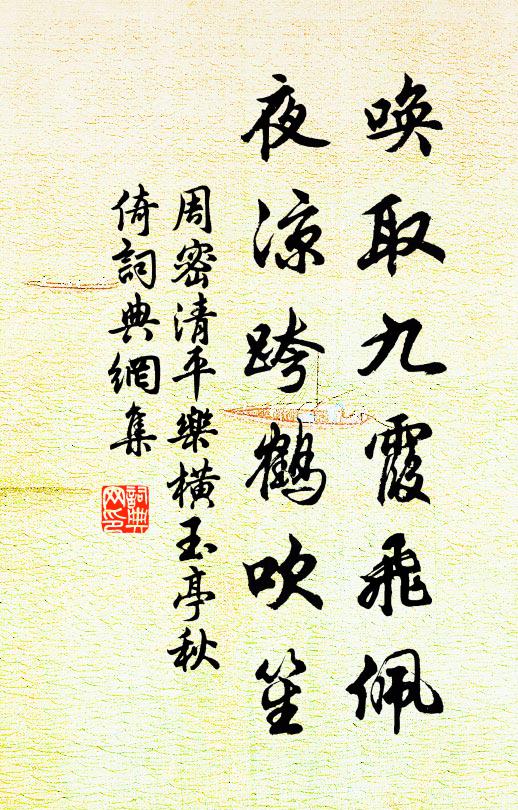 唤取九霞飛佩
夜涼跨鶴吹笙
周密清平樂橫玉亭秋
倚詞典網集
詞典网印